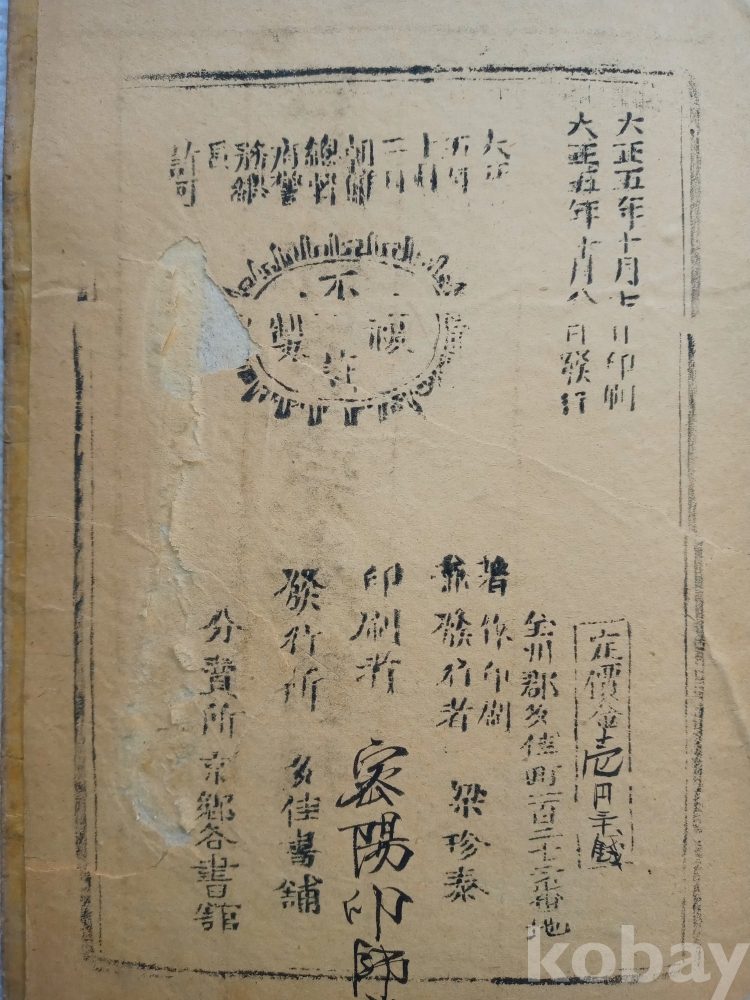 大正五年十月七日印刷
大正五年十月八日發行
大正
五年
十月
二日
朝鮮
總督
府警
務總
長
許可
不許複製
定價金壱円
全州郡多佳町一百二十三番地
著作印刷
兼發行者 梁珍泰
印刷者
發行所 多佳書舖
分賣所 京鄕各書舘
kobay